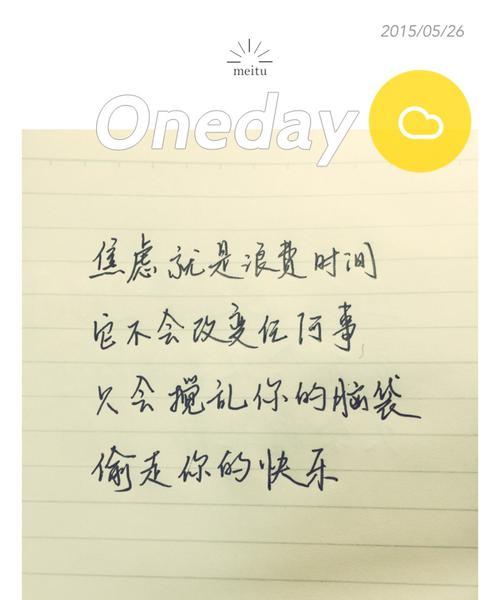 2015/05/26
meitu
Oneday
焦虑就是浪费时间
它不会改变任何事
只会搅乱你的脑袋
偷走你的快乐